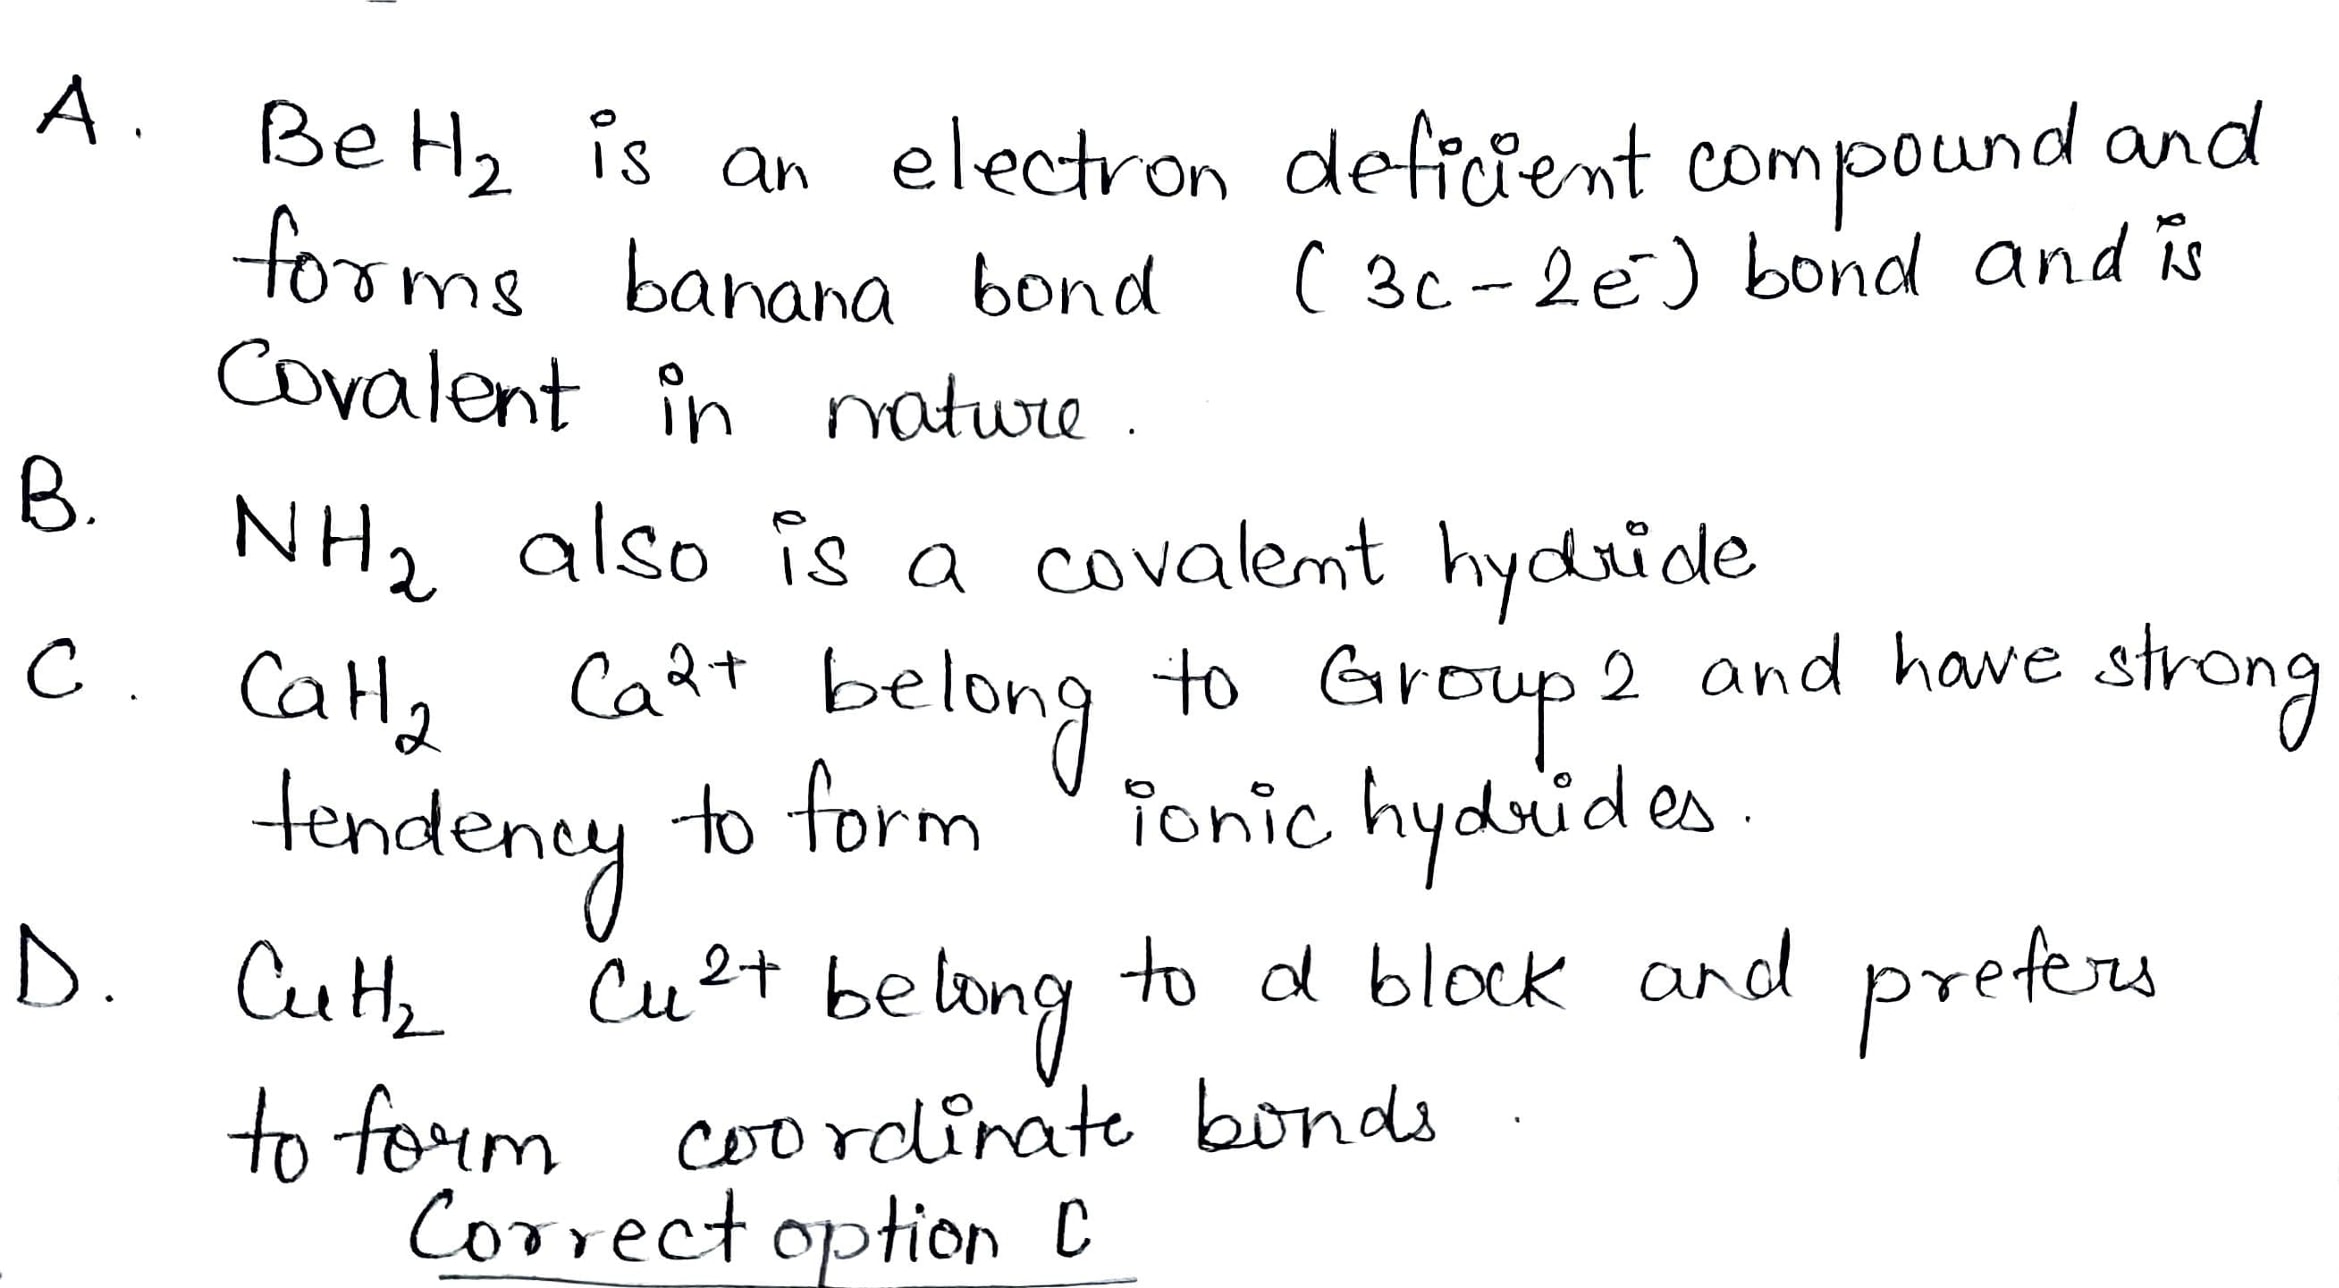 A. BeH₂ is an electron deficient compound and
forms banana bond (3c-2e⁻) bond and is
Covalent in nature.
B. NH₂ also is a covalent hydride
C. CaH₂ Ca²⁺ belong to Group 2 and have strong
tendency to form ionic hydrides.
D. CuH₂ Cu²⁺ belong to d block and prefers
to form coordinate bonds.
Correct option C